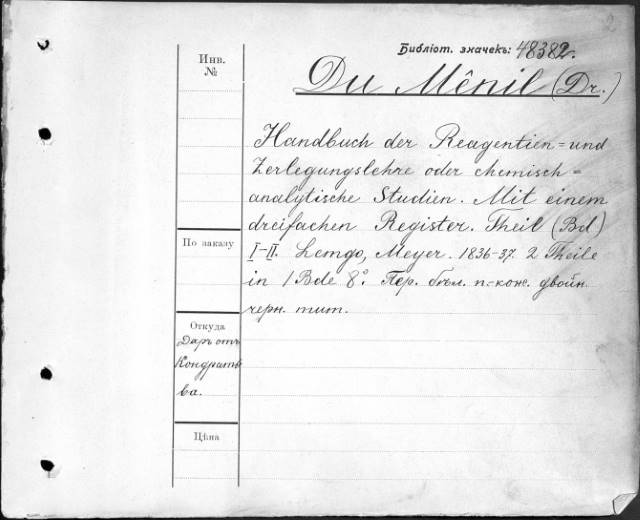 2
Библіот. значекъ: 48382.
Du Mênil (Dr.)
Инв.
№
Handbuch der Reagentien=und
Zerlegungslehre oder chemisch=
analytische Studien. Mit einem
dreifachen Register. Theil (Bd)
I-II. Lemgo, Meyer. 1836-37. 2 Theile
in 1 Bde 8°. Пер. бѣл. п.-кож. двойн.
черн. тит.
По заказу
Откуда
Даръ отъ
Кондратье
ва.
Цѣна